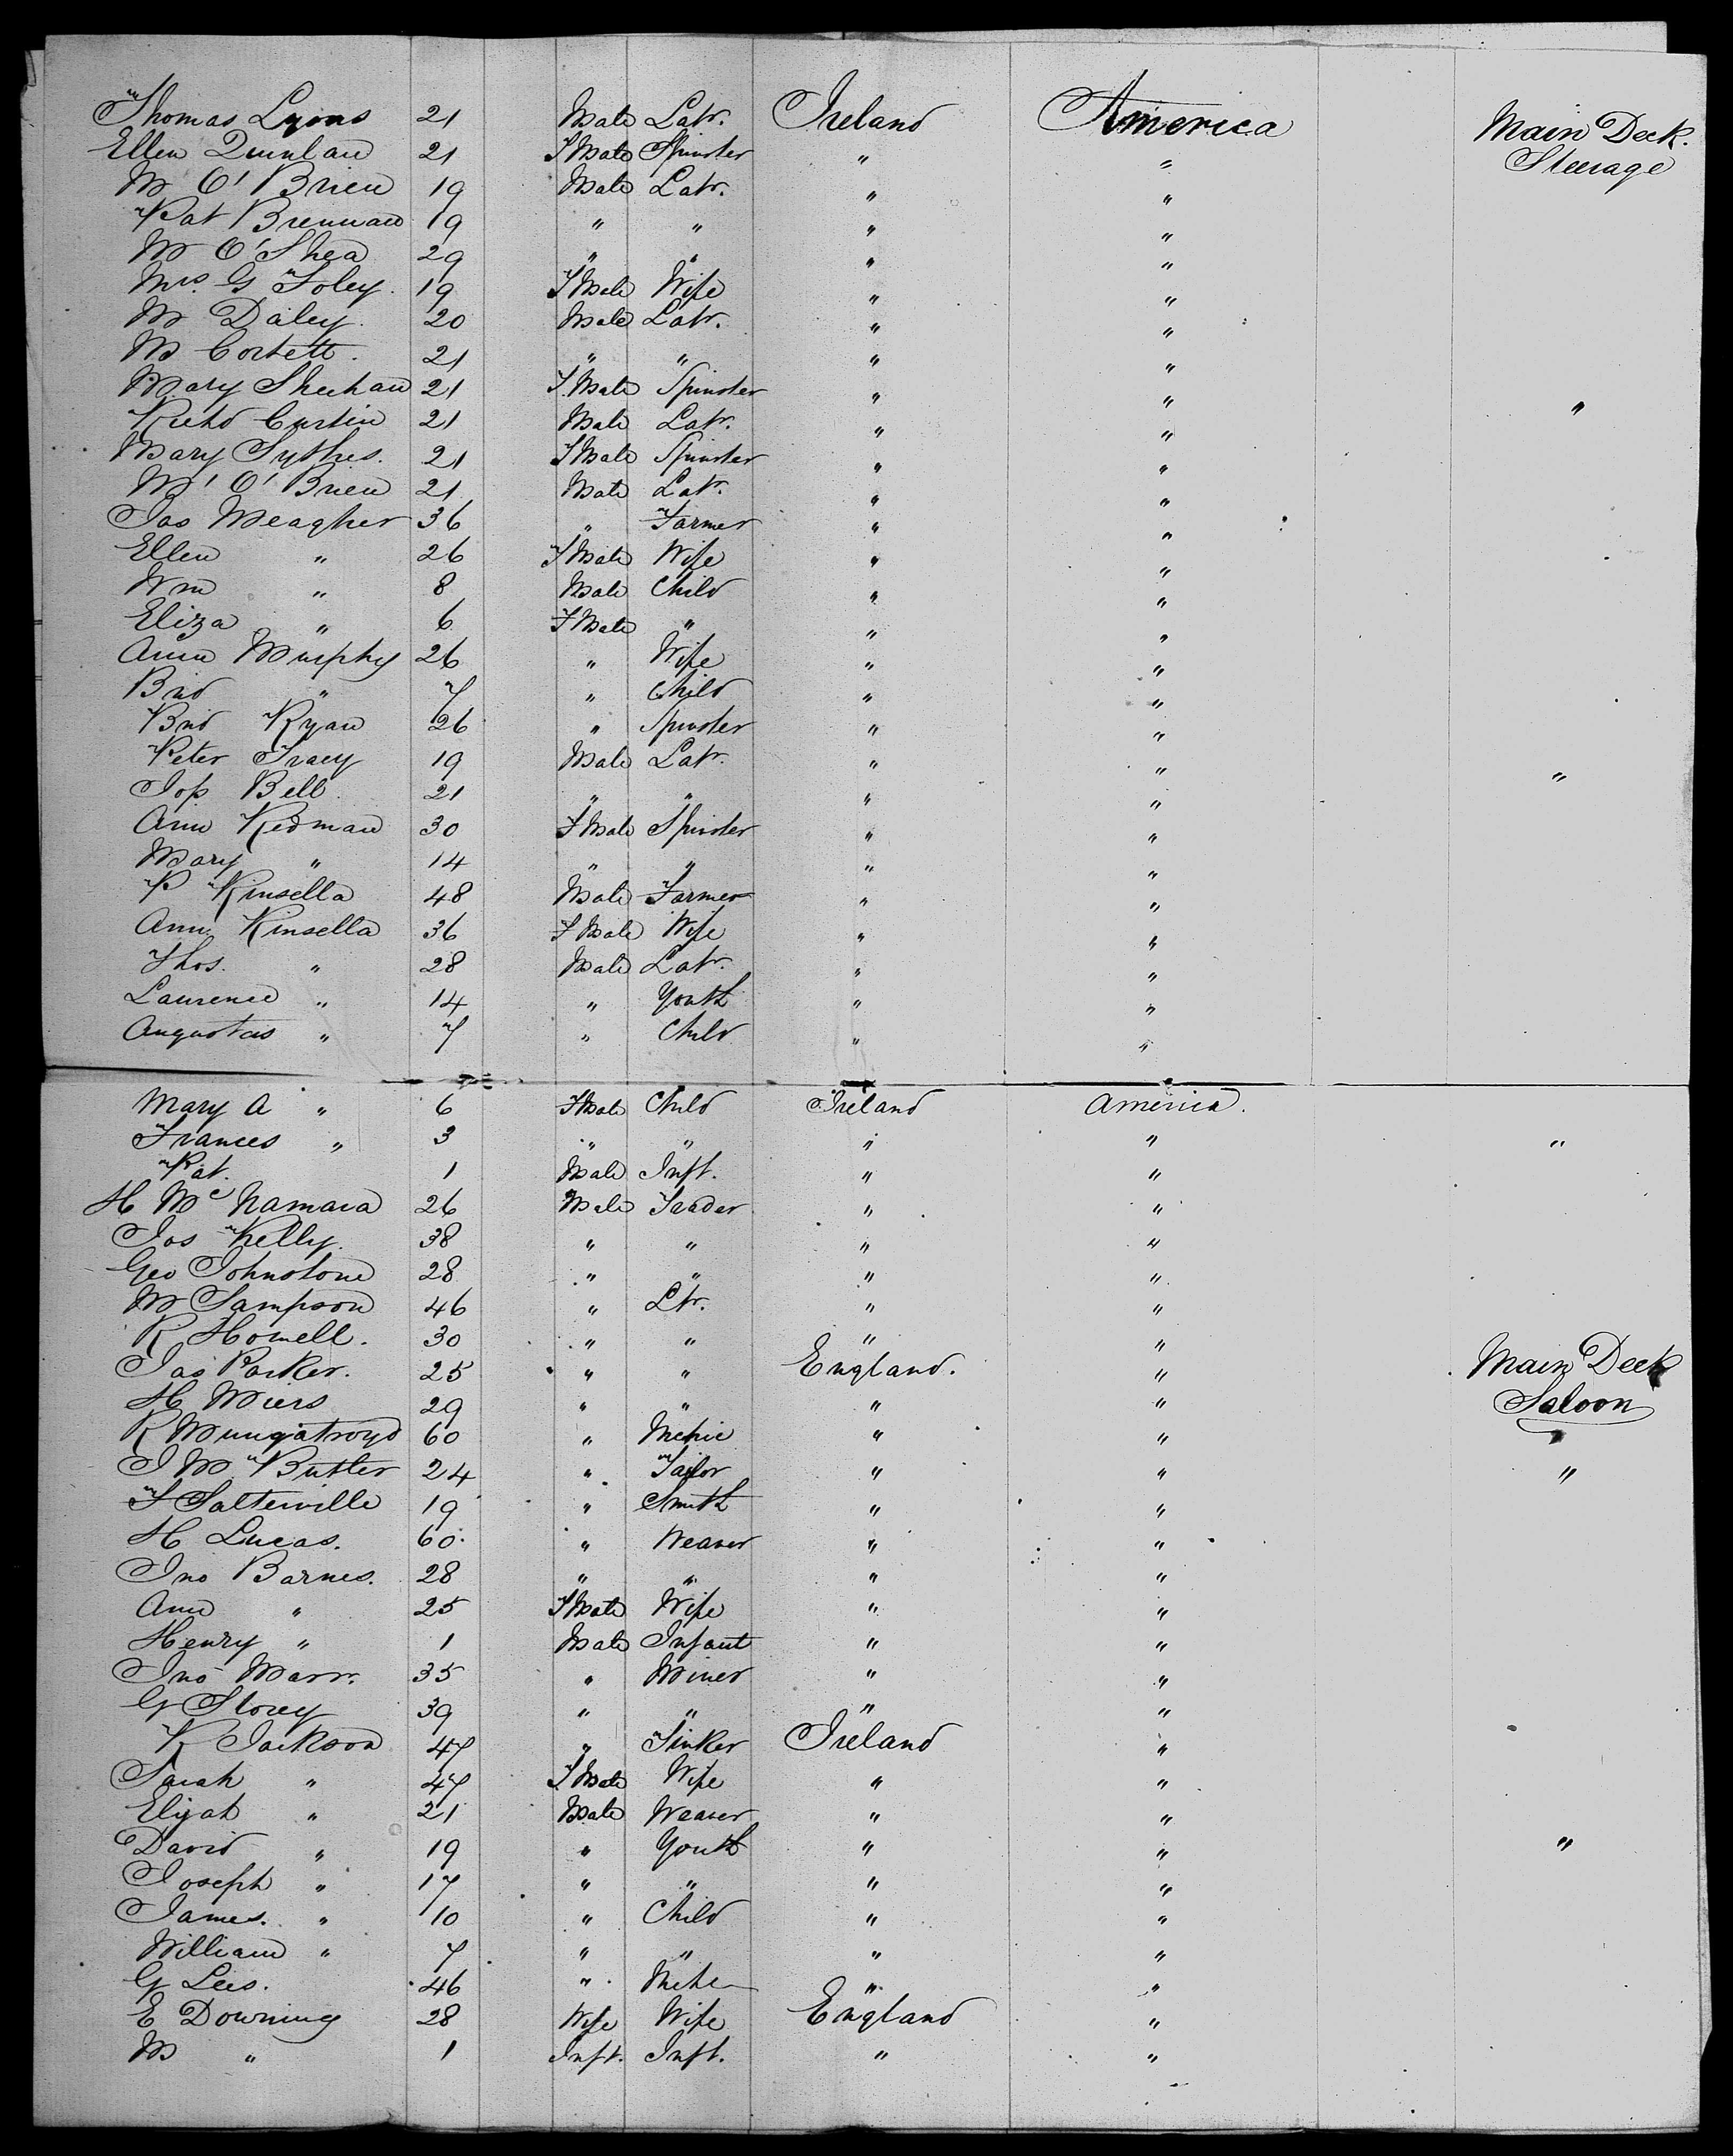 Thomas Lyons 21 Male Labr. Ireland America Main Deck.
Ellen Quinlan 21 FMale Spinster " " Steerage
M O'Brien 19 Male Labr. " "
Pat Brennan 19 " " " "
M O'Shea 29 " " " "
Mrs. G Foley. 19 FMale Wife " "
M Daley. 20 Male Labr. " "
M Corbett. 21 " " " "
Mary Sheehan 21 F.Male Spinster " "
Richd Curtin 21 Male Labr. " " "
Mary Sythes. 21 FMale Spinster " "
M' O'Brien 21 Male Labr. " "
Jas Meagher 36 " Farmer " "
Ellen " 26 FMale Wife " "
Wm " 8 Male Child " "
Eliza " 6 FMale " " "
Ann Murphy 26 " Wife " "
Brid " 7 " Child " "
Brid Ryan 26 " Spinster " "
Peter Tracy 19 Male Labr. " "
Jos Bell 21 " " " " "
Ann Redman 30 FMale Spinster " "
Mary " 14 " " " "
P Kinsella 48 Male Farmer " "
Ann Kinsella 36 FMale Wife " "
Thos. " 28 Male Labr. " "
Laurence " 14 " Youth " "
Augustus " 7 " Child " "
Mary A " 6 FMale Child Ireland America.
Frances " 3 " " " " "
Pat. 1 Male Inft. " "
H McNamara 26 Male Trader " "
Jos Kelly. 38 " " " "
Geo Johnstone 28 " " " "
M Sampson 46 " Lbr. " "
R Howell. 30 " " " "
Jas Parker. 25 " " England. " Main Deck
H Miers 29 " " " " Saloon
R Mungatroyd 60 " Mchic " "
J M Butler 24 " Tailor " " "
T Salterville 19 " Smith " "
H Lucas. 60 " Weaver " "
Jno Barnes. 28 " " " "
Ann " 25 FMale Wife " "
Henry " 1 Male Infant " "
Jno Marr. 35 " Miner " "
G Storey 39 " " " "
R Jackson 47 " Tinker Ireland "
Sarah " 47 FMale Wife " "
Elijah " 21 Male Weaver " "
David " 19 " Youth " " "
Joseph " 17 " " " "
James. " 10 " Child " "
William " 7 " " " "
G Lees. 46 " " "
E Downing 28 Wife Wife England "
M " 1 Inft. Inft. " "